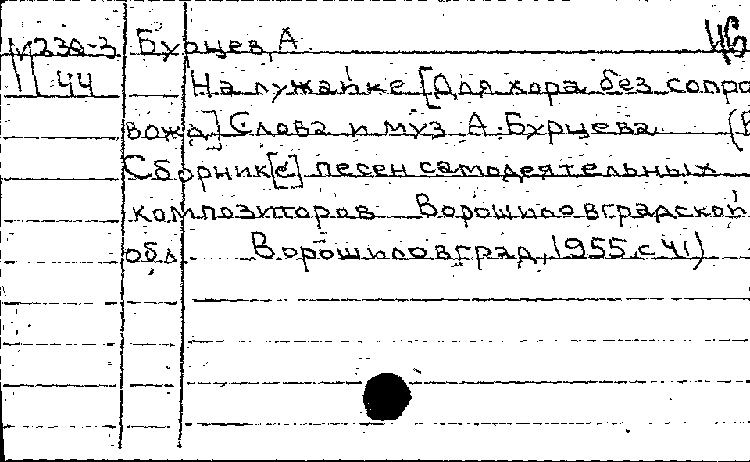 М230-3 Бурцев, А. 46
44 На лужайке [Для хора без сопро
вожд] Слова и муз А. Бурцева (В
Сборник[е] песен самодеятельных
композиторов Ворошиловградской
обл. Ворошиловград, 1955, с 41)